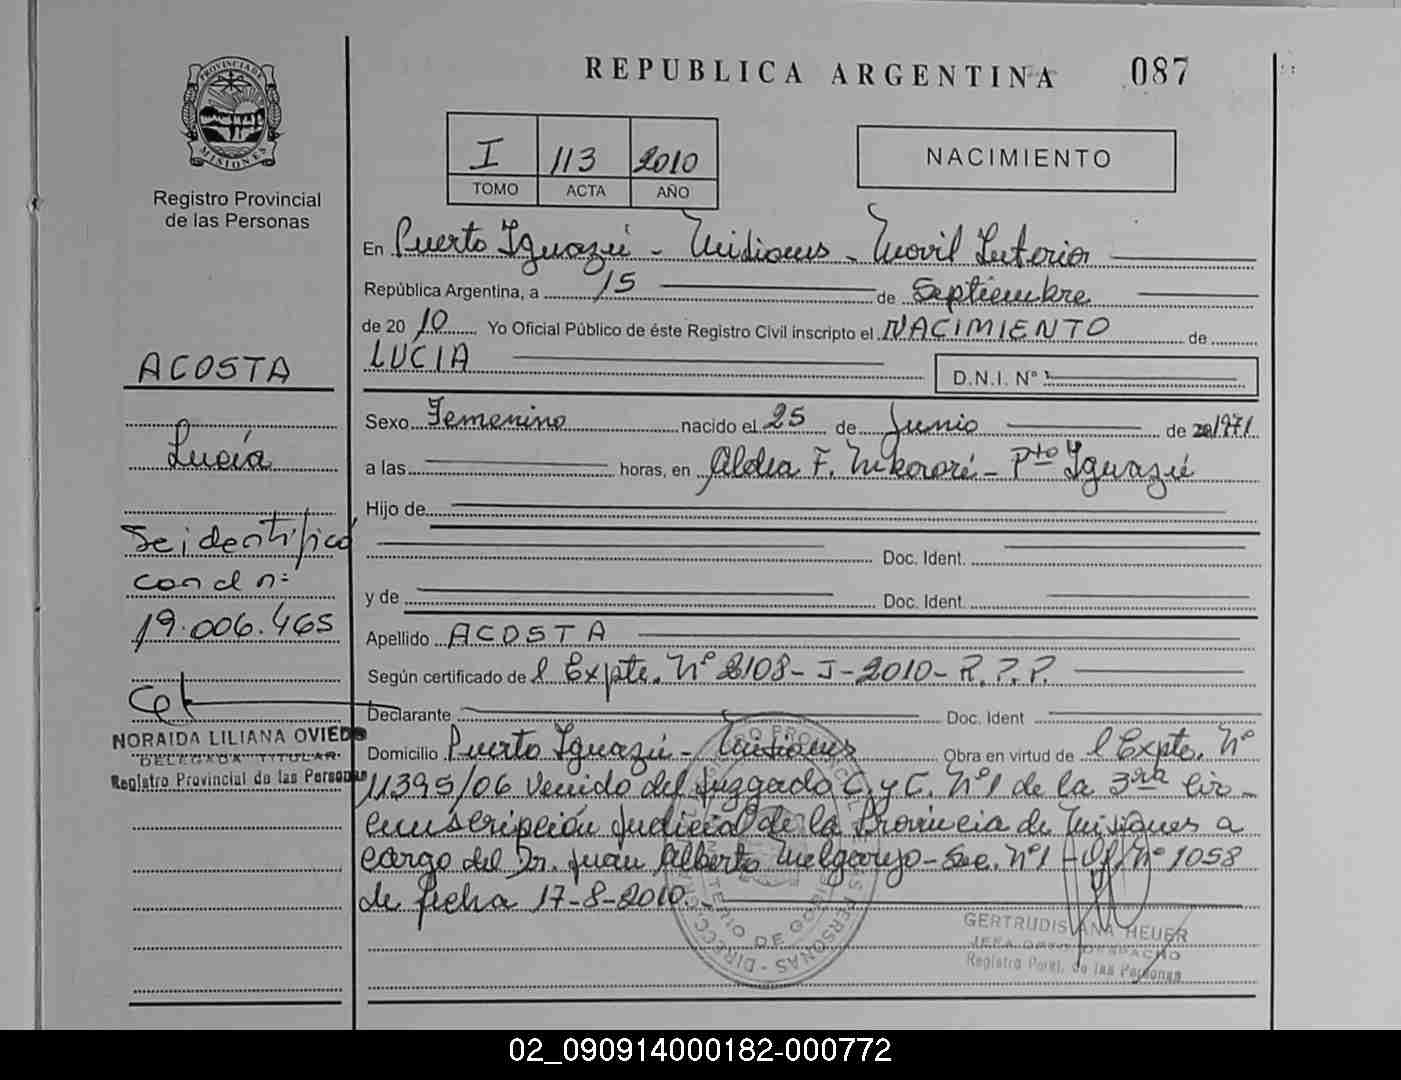 REPUBLICA ARGENTINA 087
PROVINCIA DE MISIONES
Registro Provincial
de las Personas
I 113 2010
TOMO ACTA AÑO
NACIMIENTO
En Puerto Iguazú - Misiones - Móvil Interior
República Argentina, a 15 de Septiembre
de 2010 Yo Oficial Público de éste Registro Civil inscripto el NACIMIENTO de
LUCIA
D.N.I. Nº
Sexo Femenino nacido el 25 de Junio de 1971
a las horas, en Aldea F. Mbororé - Pto Iguazú
Hijo de
Doc. Ident.
y de Doc. Ident.
Apellido ACOSTA
Según certificado de l Expte. Nº 2108-J-2010-R.P.P.
Declarante Doc. Ident
Domicilio Puerto Iguazú - Misiones Obra en virtud de l Expte. Nº
11395/06 venido del Juzgado C. y C. Nº1 de la 3ra Cir-
cunscripción Judicial de la Provincia de Misiones a
cargo del Dr. Juan Alberto Melgarejo - Sec. Nº1 - Of. Nº 1058
de fecha 17-8-2010.-
GERTRUDIS ANA HEUER
JEFA DPTO DESPACHO
Registro Provl. de las Personas
ACOSTA
Lucía
Se identificó
con d nº
19.006.465
NORAIDA LILIANA OVIEDO
DELEGADA TITULAR
Registro Provincial de las Personas
02_090914000182-000772